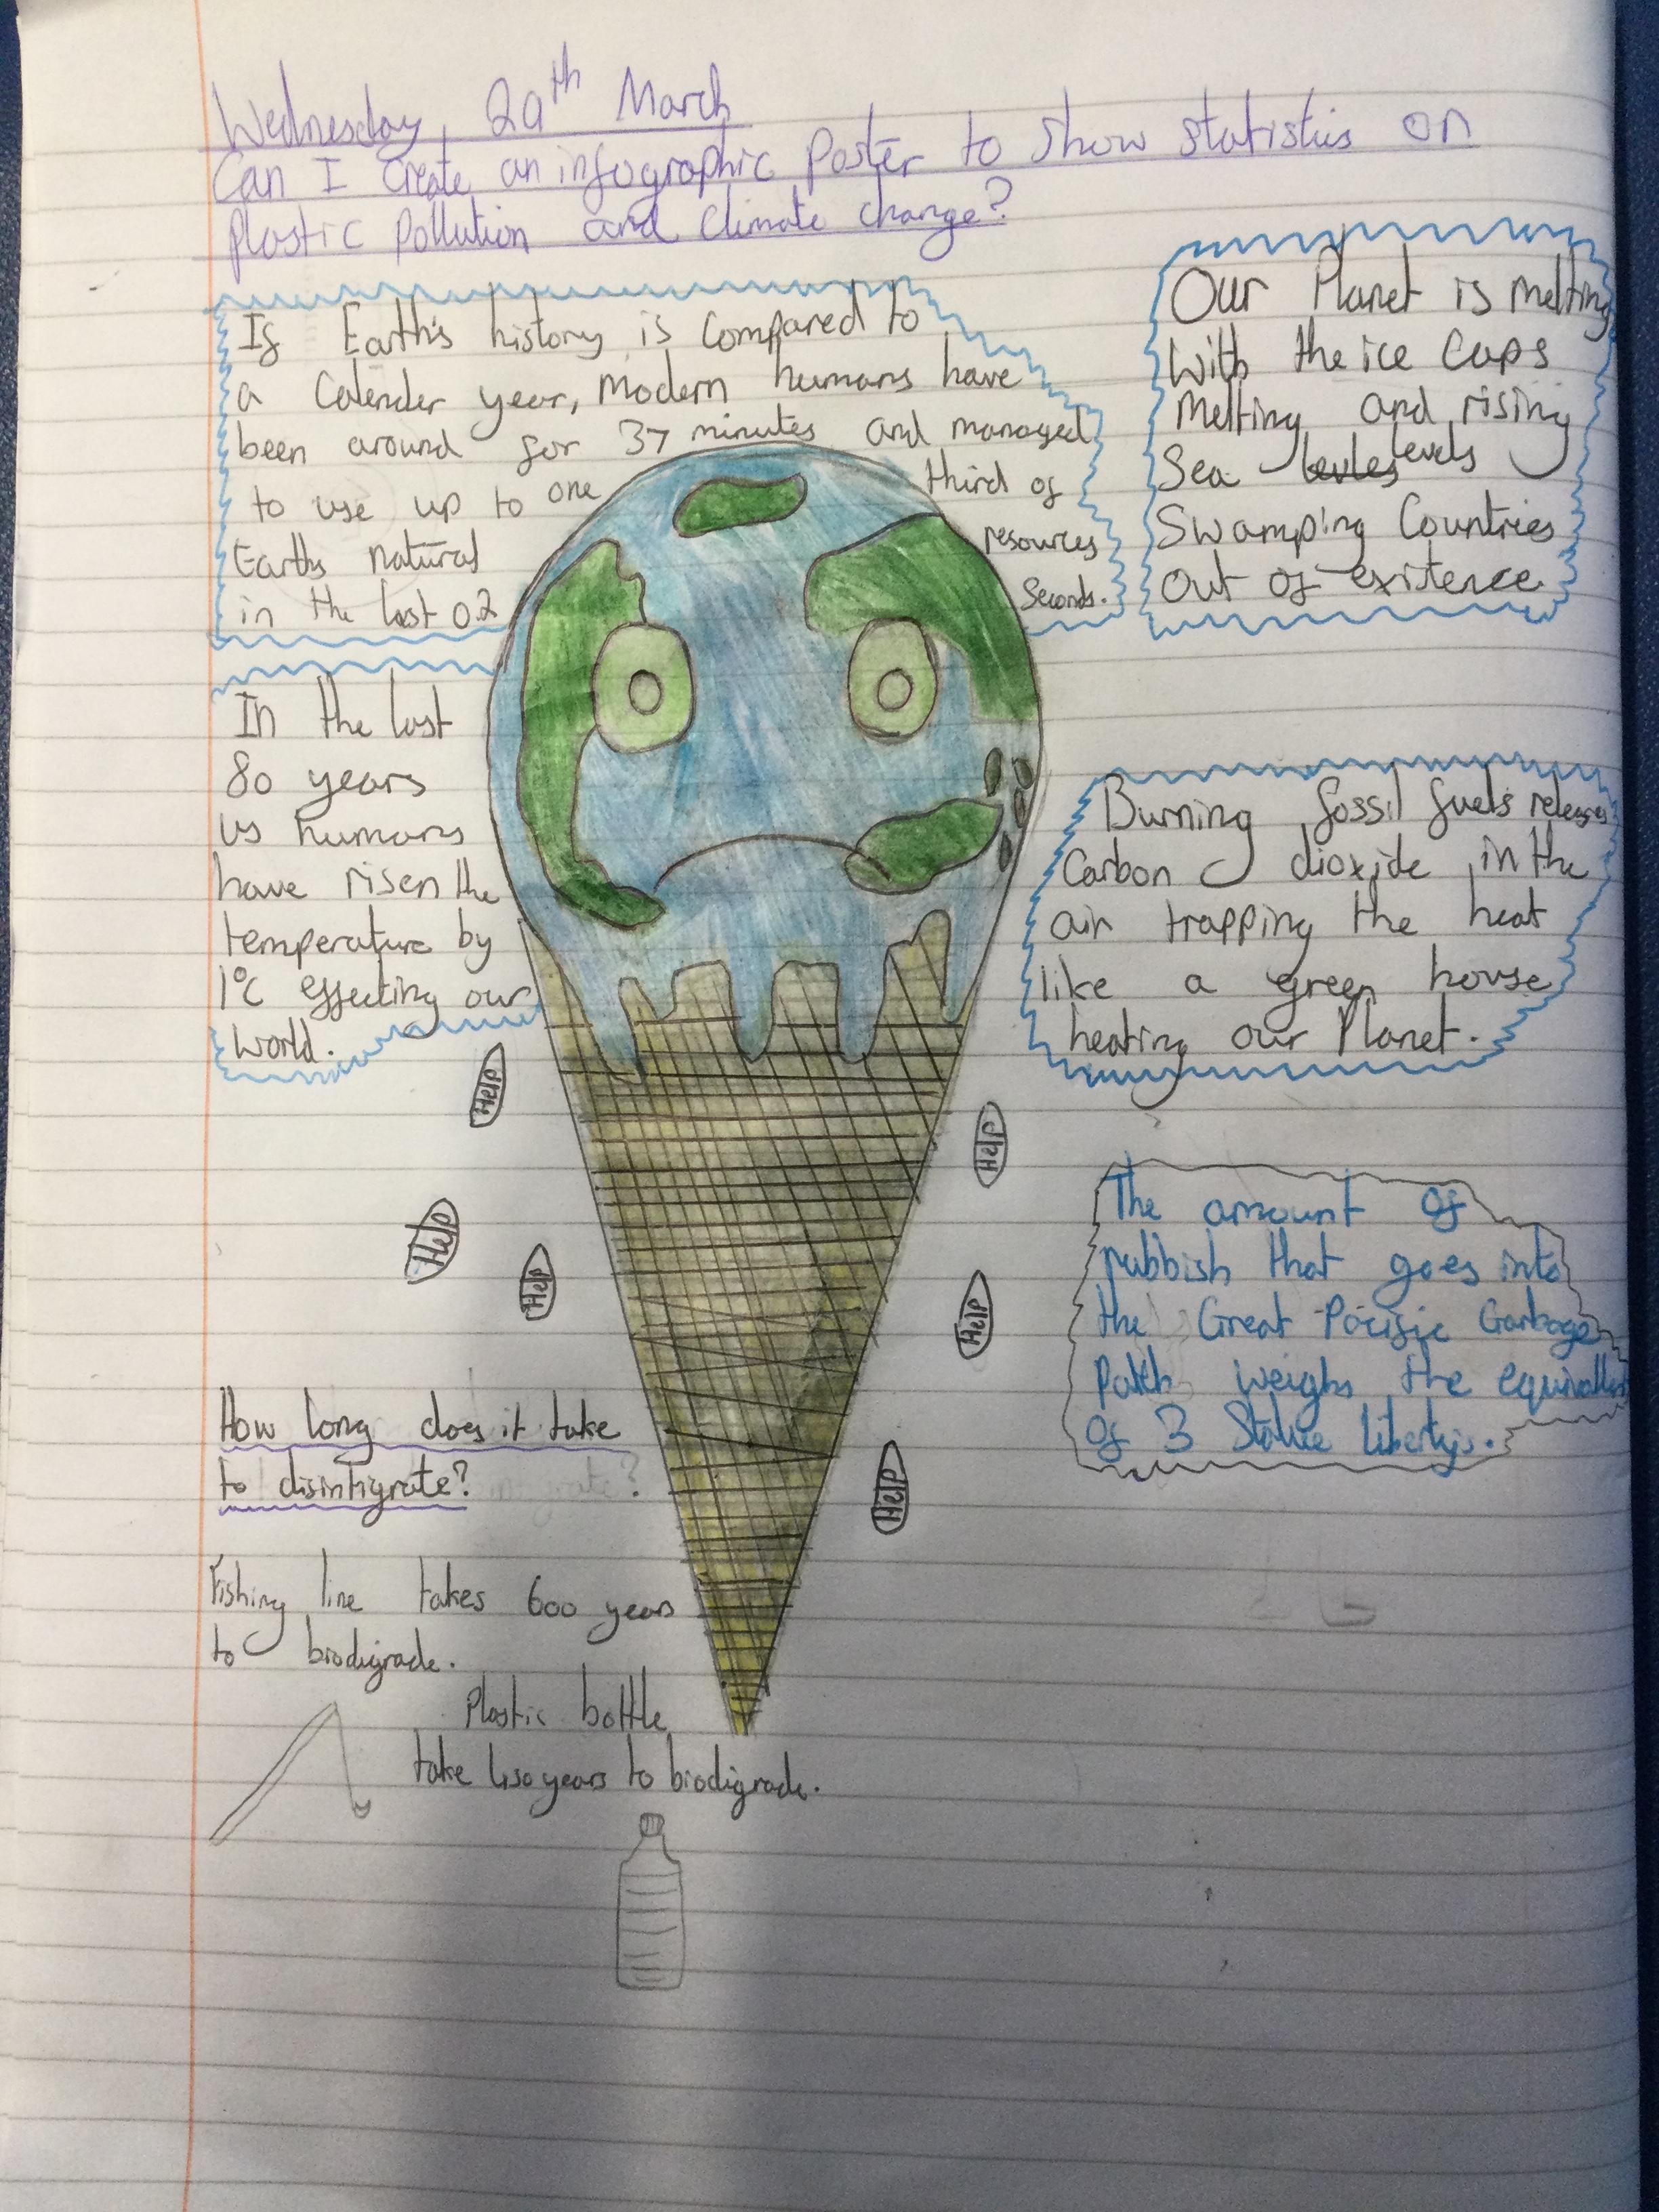 Wednesday, 29th March
Can I create an infographic poster to show statistics on
plastic pollution and climate change?
If Earth's history is compared to
a Calender year, modern humans have
been around for 37 minutes and managed
to use up to one third of
Earths natural resources
in the last 0.2 seconds.
Our Planet is melting
with the ice caps
melting and rising
Sea levels
Swamping Countries
out of existence
In the last
80 years
us humans
have risen the
temperature by
1°C effecting our
world.
Burning fossil fuels releases
Carbon dioxide in the
air trapping the heat
like a green house
heating our Planet.
Help
Help
Help
Help
Help
Help
The amount of
rubbish that goes into
the Great Pacific Garbage
patch weighs the
of 3 Statue libertys.
How long does it take
to disintigrate?
Fishing line takes 600 years
to biodigrade.
Plastic bottle
take 450 years to biodigrade.